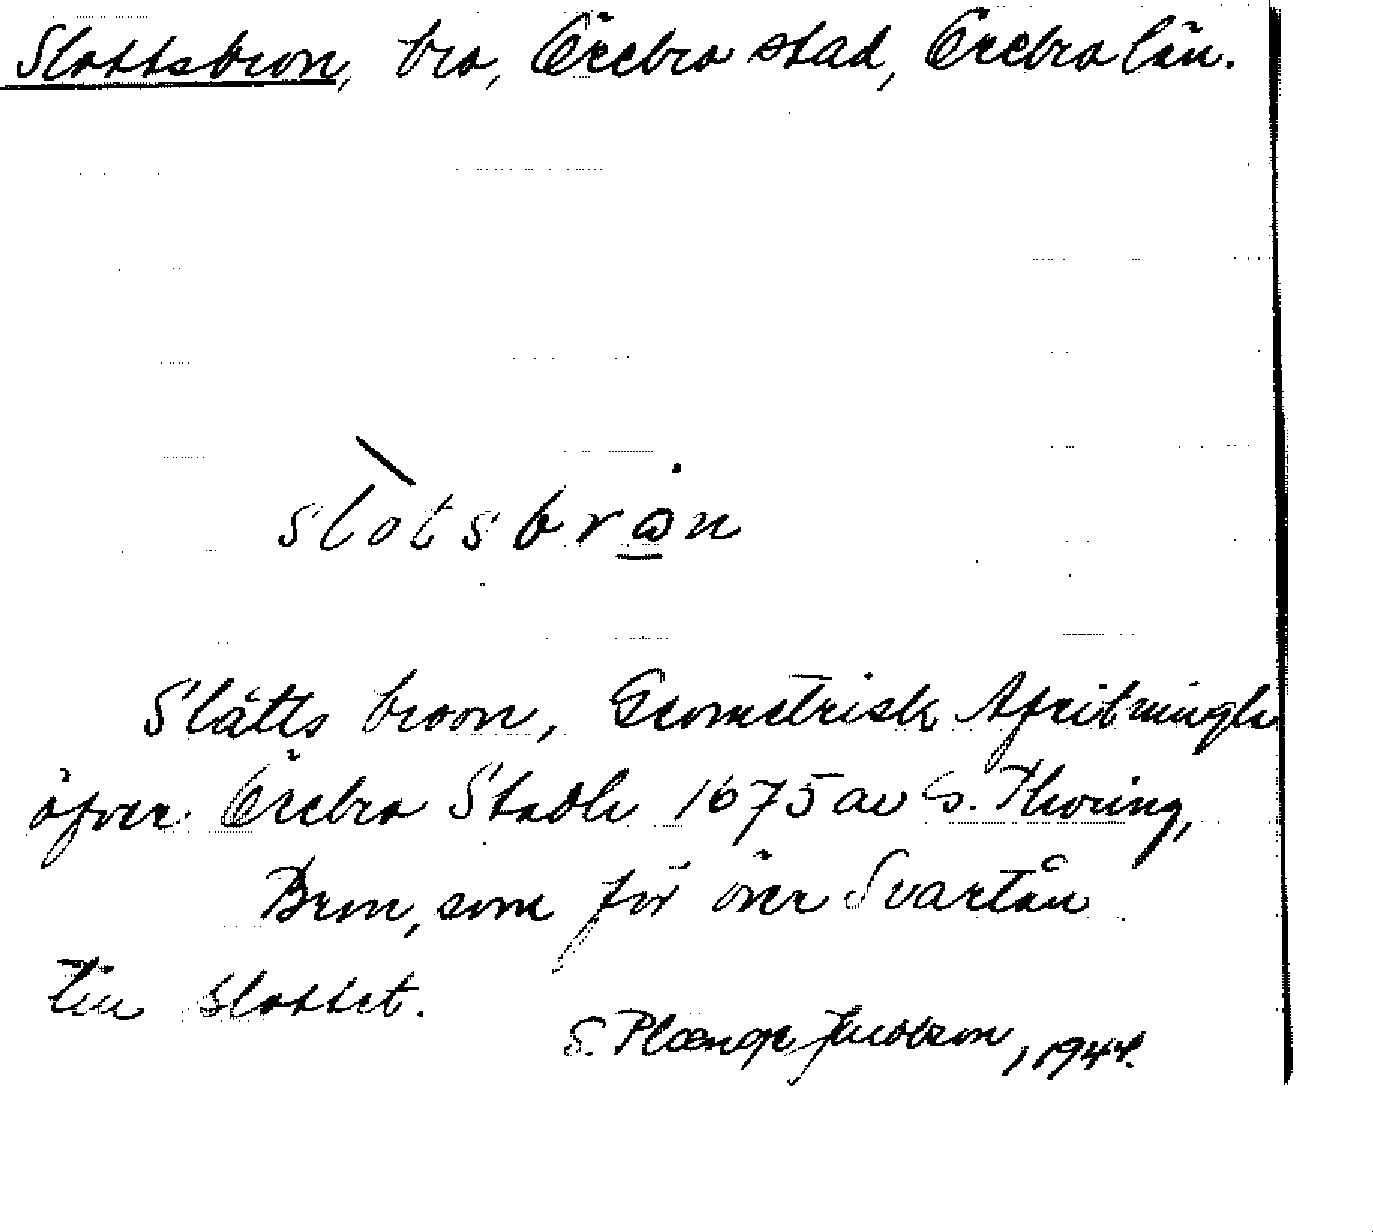 Slottsbron, bro, Örebro stad, Örebro län.
slòtsbrω̇n
Slåtts broon, Geometrisk Afritningh
öfver Örebro Stadh 1675 av G. Thoring,
Bron, som för över Svartån
till slottet.
S. Plænge Jacobson, 1944.